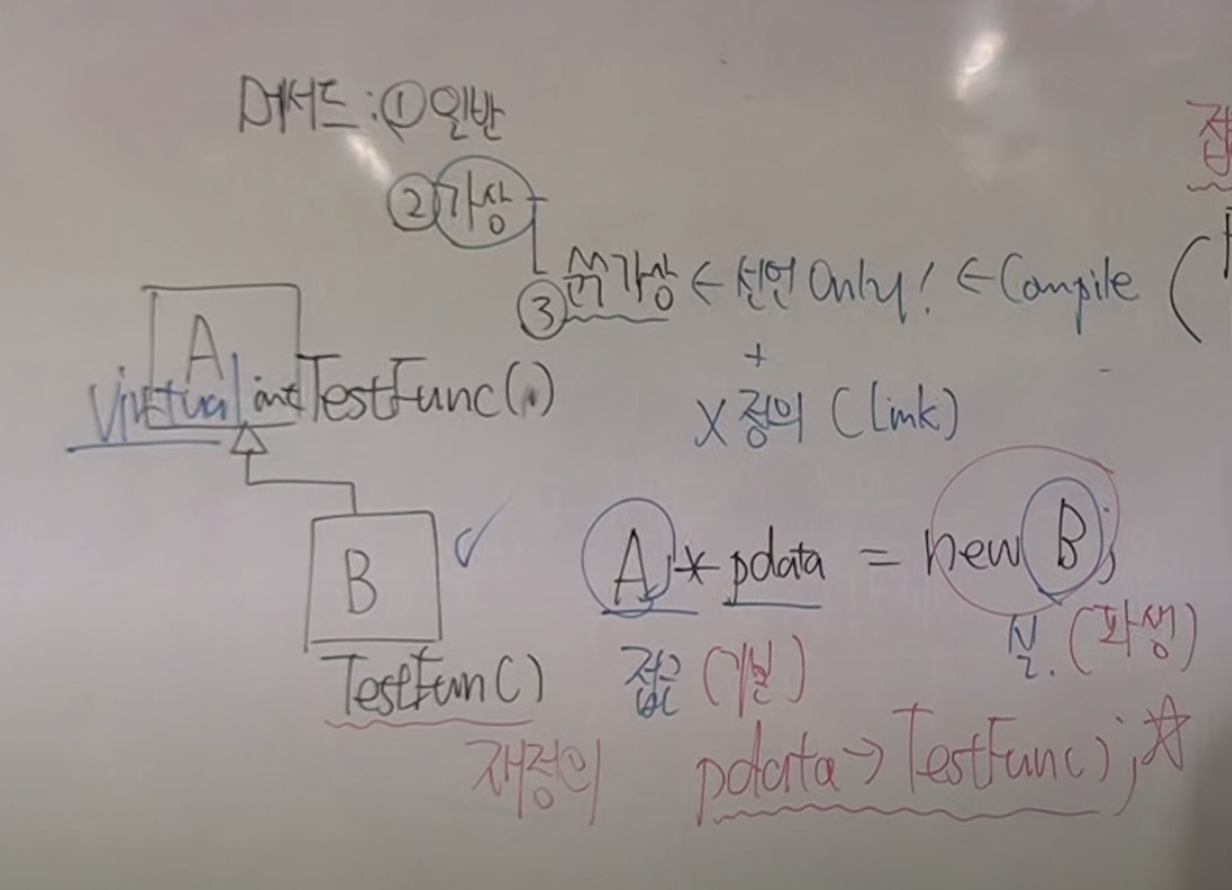 메서드 : ① 일반
② 가상
③ 순가상 ← 선언 Only! ← Compile (
+
X 정의 (Link)
A
virtual int TestFunc()
B
TestFunc()
재정의
A* pdata = new B;
접근 (기본) 실. (파생)
pdata→TestFunc();☆
접